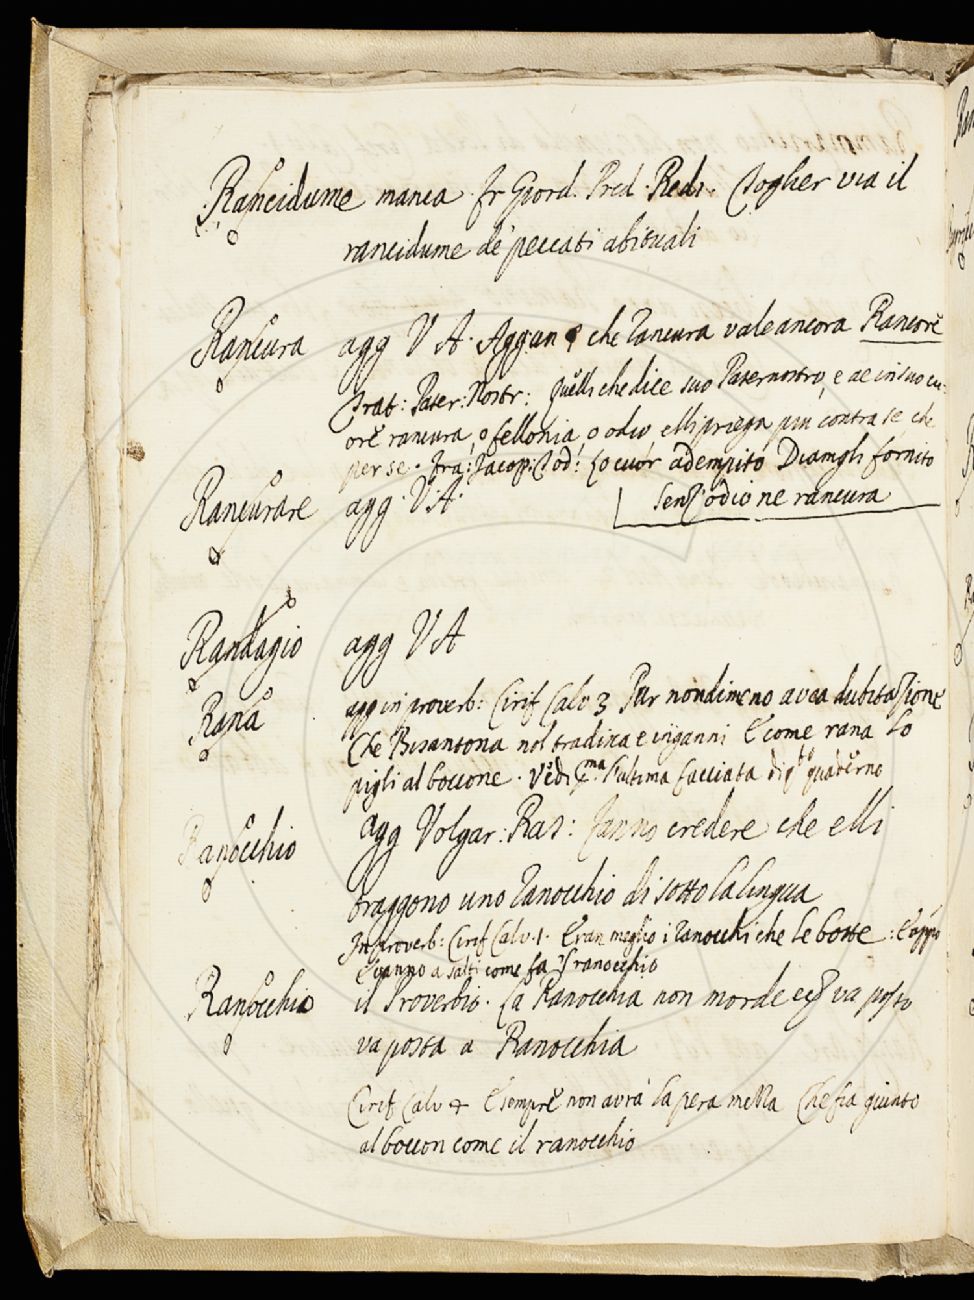 Rancidume manca. fr Giord. Pred. Redi. Toglier via il
rancidume de' peccati abituali
Rancura agg V A. Aggun che rancura vale ancora Rancore
Trat: Pater: Nostr: quelli che dice suo Paternostro, e ae in suo cu-
ore rancura, o fellonia, o odio, elli priega piu contra se che
per se. Fra: Jacop: Tod: Lo cuor adempito Diamgli fornito
Senz'odio ne rancura
Rancurare agg. V. A.
Randagio agg V A
Rana agg in proverb: Cirif Calv 3 Pur nondimeno avea dubitazione
Che Bisantona nol tradisca e inganni E come rana lo
pigli al boccone. Vedi l'ultima facciata di q.º quaderno
Ranocchio agg Volgar: Ras: fanno credere che elli
traggono uno ranocchio di sotto la lingua
In proverb: Cirif Calv. 1. E ran meglio i ranocchi che le botte:
E vanno a salti come fa il ranocchio
Ranocchia il Proverbio. La Ranocchia non morde va posto
va posta a Ranocchia
Cirif Calv 4 E sempre non avrà la pera mezza Che fia giunto
al boccon come il ranocchio